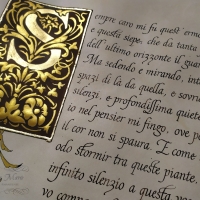 S
empre caro mi fu quest'erm
e questa siepe, che da tanta
dell'ultimo orizzonte il guar
Ma sedendo e mirando, int
spazi di là da quella, e sovru
silenzi, e profondissima quiete
io nel pensier mi fingo, ove pe
il cor non si spaura. E come
odo stormir tra queste piante,
infinito silenzio a questa vo
vo compar